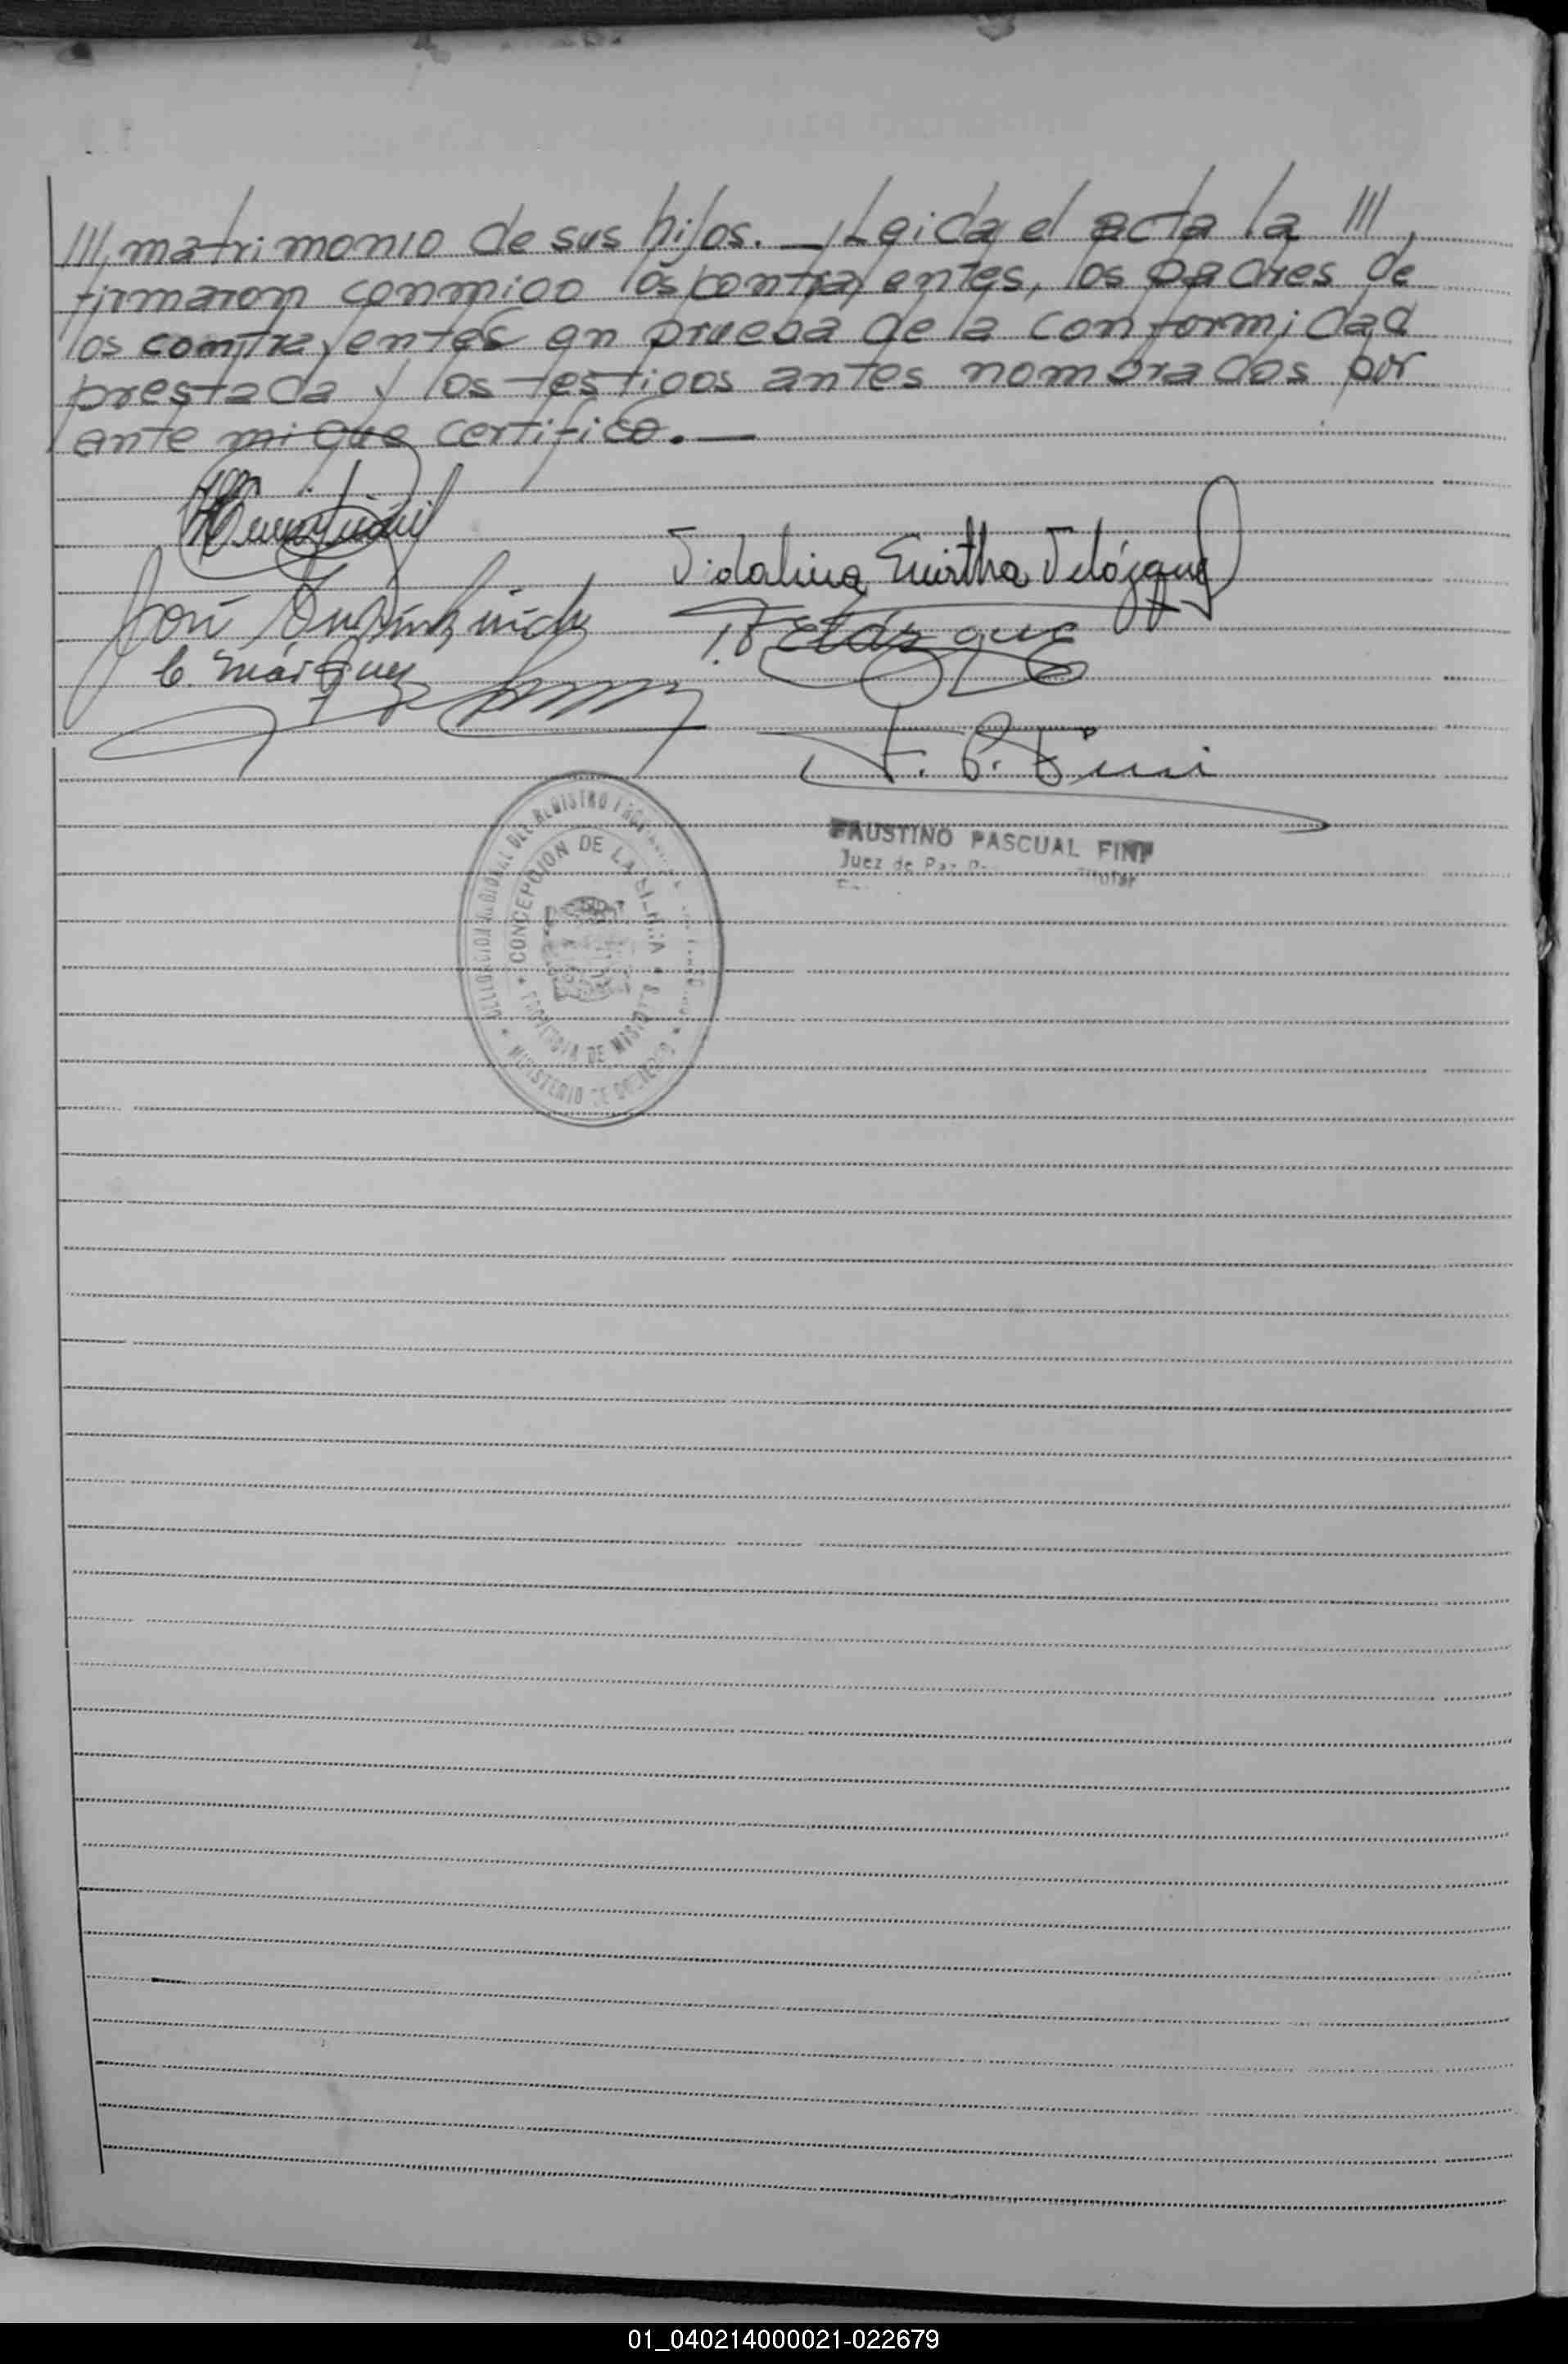 /// matrimonio de sus hijos. — Leida el acta la ///
firmaron conmigo los contrayentes, los padres de
los contrayentes en prueba de la conformidad
prestada y los testigos antes nombrados por
ante mi que certifico. —
Vidalina Mirtha Velázquez
José
Velázquez
C. Márquez
F. P. Fini
FAUSTINO PASCUAL FINI
Juez de Paz Titular
REGISTRO
CONCEPCION DE LA SIERRA
DE MISIONES
MINISTERIO DE GOBIERNO
01_040214000021-022679